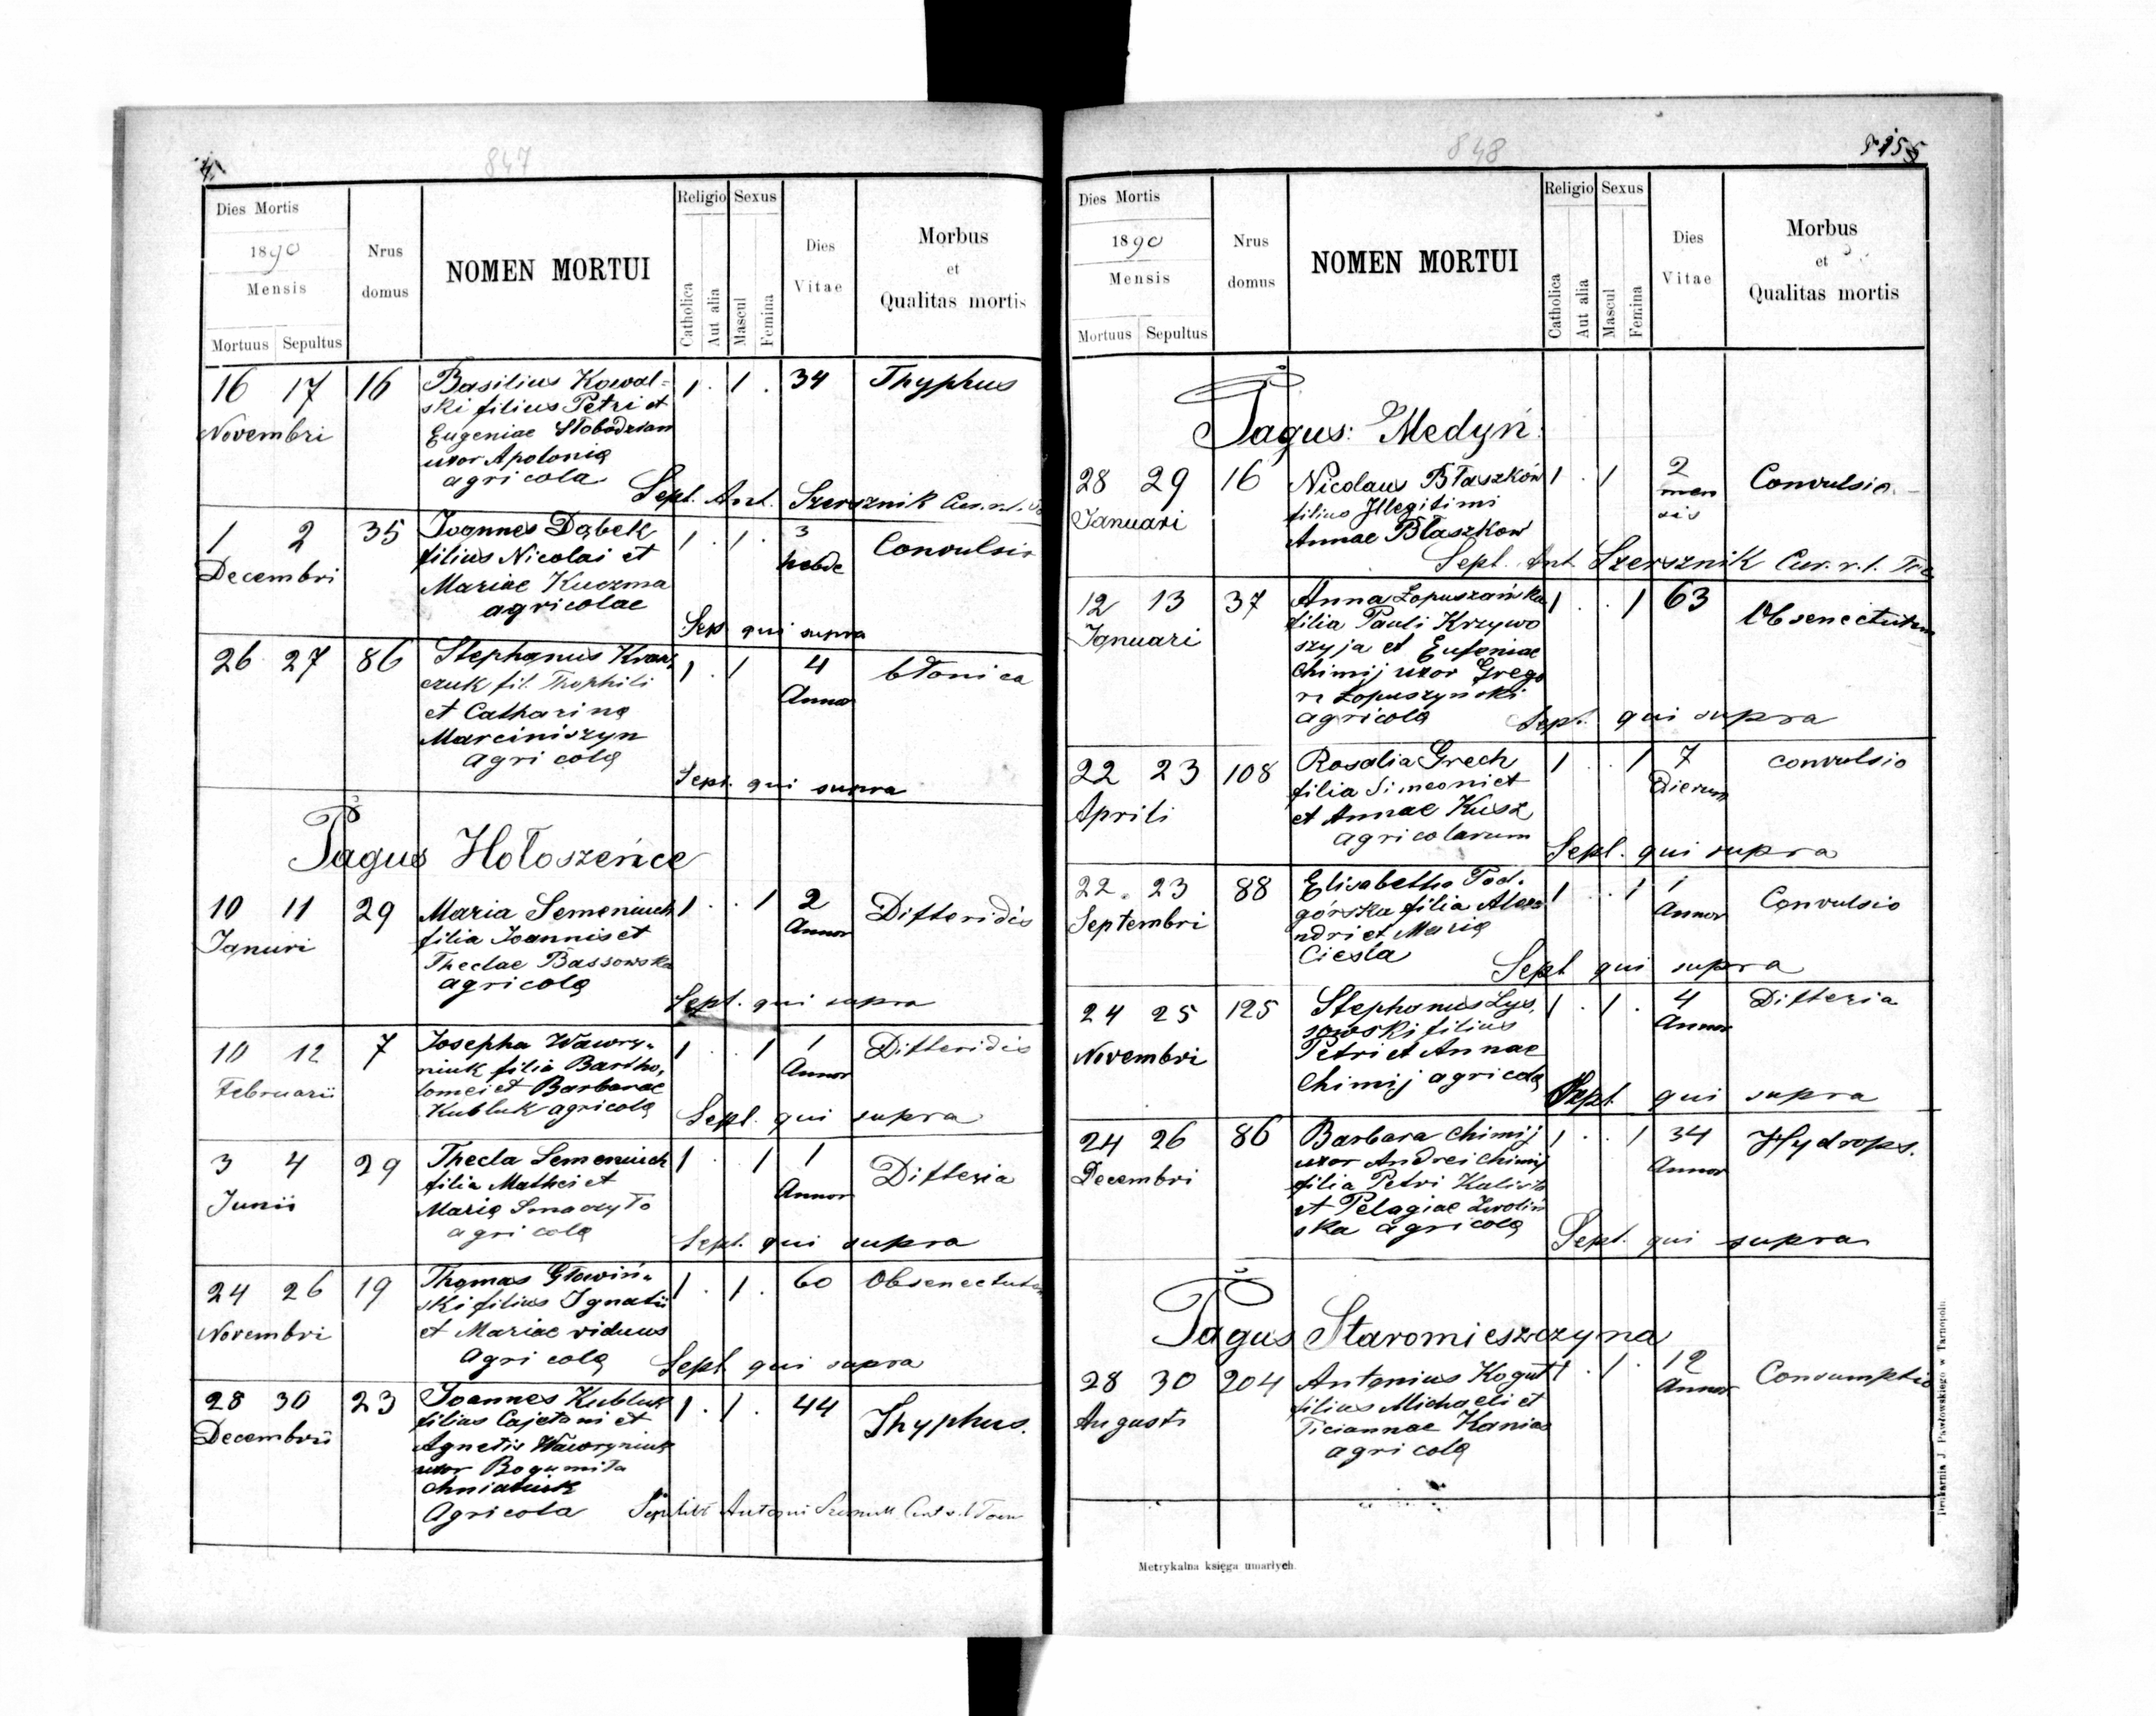 847
Dies Mortis
1890
Mensis
Mortuus Sepultus
Nrus domus
NOMEN MORTUI
Religio Sexus
Catholica Aut alia Mascul Femina
Dies Vitae
Morbus et Qualitas mortis
16 17 16 Basilius Kowal= 1 . 1 . 34 Thyphus
Novembri ski filius Petri et
Eugeniae Słobodzian
uxor Apolonia
agricola
Sept. Ant. Szersznik
1 2 35 Joannes Dąbek 1 . 1 . 3 Convulsio
Decembri filius Nicolai et hebde
Mariae Kuczma
agricolae
Sep qui supra
26 27 86 Stephanus 1 . 1 4 błonica
czuk fil. Thophili Annor
et Catharinę
Marciniszyn
agricolę
Sept. qui supra
Pagus Hołoszeńce
10 11 29 Maria Semeniuch 1 . . 1 2 Difteridis
Januri filia Joannis et Annor
Theclae Bassowska
agricolę
Sept. qui supra
10 12 7 Josepha Wawry„ 1 . . 1 1 Difteridis
Februarii niuk filia Bartho„ Annor
lomei et Barbarae
Kubluk agricolę
Sept. qui supra
3 4 29 Thecla Semeniuch 1 . 1 1 Difteria
Junii filia Mathei et Annor
Marię Smaczyło
agricolę
Sept. qui supra
24 26 19 Thomas Głowiń„ 1 . 1 . 60 Obsenectutem
Novembri ski filius Ignatii
et Mariae viduus
Agricolę
Sept. qui supra
28 30 23 Joannes Kubluk 1 . 1 . 44 Thyphus.
Decembrii filius Cajetani et
Agnetis Wawryniuk
uxor Bogumiła
Chniatiuk
Agricola
848
Dies Mortis
1890
Mensis
Mortuus Sepultus
Nrus domus
NOMEN MORTUI
Religio Sexus
Catholica Aut alia Mascul Femina
Dies Vitae
Morbus et Qualitas mortis
Pagus: Medyń.
28 29 16 Nicolaus Błaszków 1 . 1 2 Convulsio.
Januari filius Illegitimi men
Annae Błaszkow sis
Sept. Ant. Szersznik Cur. r. l.
12 13 37 Anna Łopuszańska 1 . . 1 63 Obsenectutem
Januari filia Pauli Krzywo
szyja et Eufeniae
Chimij uxor Grego
ri Łopuszyński
agricolę
Sept. qui supra
22 23 108 Rosalia Grech 1 . . 1 7 convulsio
Aprili filia Simeoni et Dierum
et Annae Kusz
agricolarum
Sept. qui supra
22 23 88 Elisabetha Pod„ 1 . . 1 1 Convulsio
Septembri górska filia Alexa Annor
ndri et Marię
Cieśla
Sept qui supra
24 25 125 Stephanus Lys„ 1 . 1 . 4 Difteria
Novembri sowski filius Annor
Petri et Annae
Chimij agricolę
Sept. qui supra
24 26 86 Barbara Chimij 1 . . 1 34 Hydrops.
Decembri uxor Andrei Chimij Annor
filia Petri
et Pelagiae Zwoliń
ska agricolę
Sept. qui supra
Pagus Staromieszczyna
28 30 204 Antonius Kogut 1 . 1 . 12 Consumptio
Augusti filius Michaeli et Annor
Ticiannae Kaniac
agricolę
Metrykalna księga umarłych.
Drukarnia J Pawłowskiego w Tarnopolu